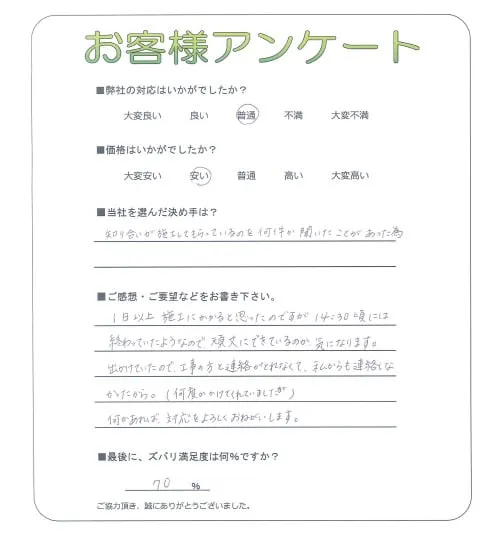 お客様アンケート
■弊社の対応はいかがでしたか？
大変良い 良い 普通 不満 大変不満
■価格はいかがでしたか？
大変安い 安い 普通 高い 大変高い
■当社を選んだ決め手は？
知り合いが施工してもらっているのを何件か聞いたことがあった為
■ご感想・ご要望などをお書き下さい。
1日以上施工にかかると思ったのですが14:30頃には
終わっていたようなので頑丈にできているのか気になります。
出かけていたので、工事の方と連絡がとれなくて、私からも連絡しな
かったから。(何度かかけてくれていましたが)
何かあれば、対応をよろしくおねがいします。
■最後に、ズバリ満足度は何％ですか？
70 %
ご協力頂き、誠にありがとうございました。